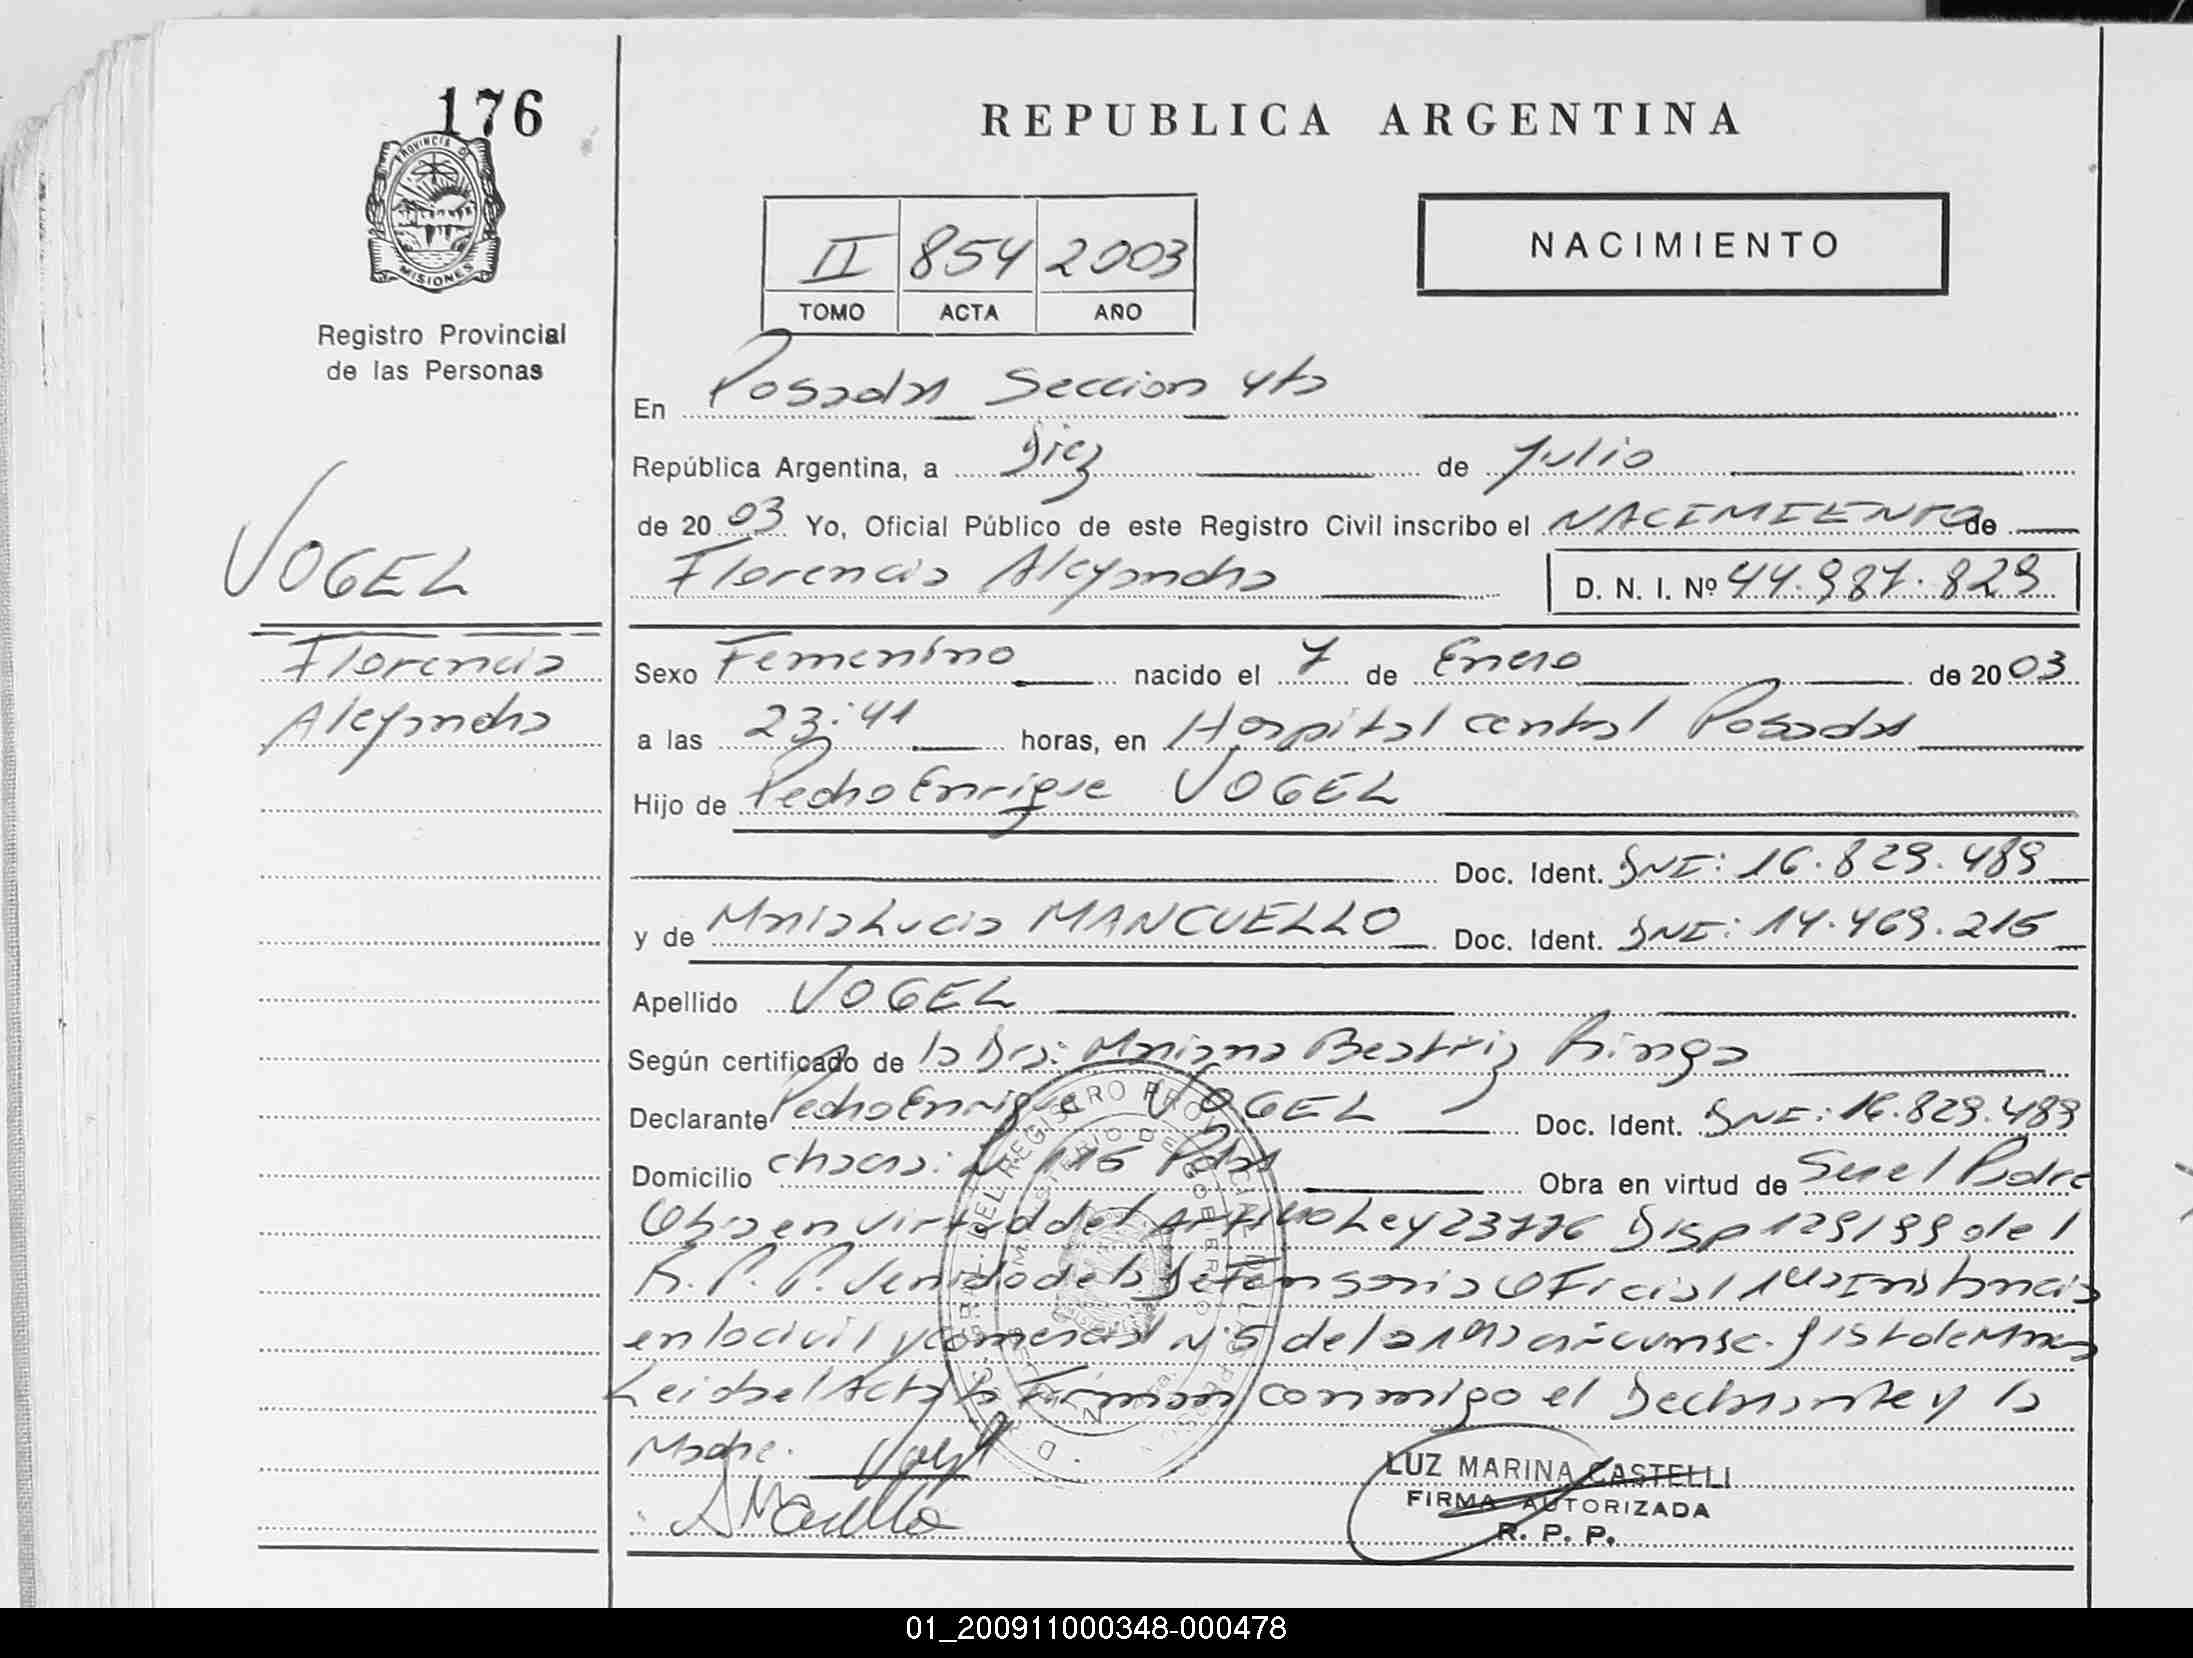 176
PROVINCIA DE
MISIONES
Registro Provincial
de las Personas
VOGEL
Florencia
Alejandra
REPUBLICA ARGENTINA
II 854 2003
TOMO ACTA AÑO
NACIMIENTO
En Posadas Seccion 4ta
República Argentina, a Diez de Julio
de 20 03 Yo, Oficial Público de este Registro Civil inscribo el NACIMIENTO de
Florencia Alejandra D. N. I. Nº 44.987.829
Sexo Femenino nacido el 7 de Enero de 20 03
a las 23:41 horas, en Hospital central Posadas
Hijo de Pedro Enrique VOGEL
Doc. Ident. DNI: 16.829.489
y de Maria Lucia MANCUELLO Doc. Ident. DNI: 14.469.215
Apellido VOGEL
Según certificado de la Dra: Mariana Beatriz Ringa
Declarante Pedro Enrique VOGEL Doc. Ident. DNI: 16.829.489
Domicilio chacra: 115 Pdas Obra en virtud de Ser el Padre
Obra en virtud del Ley 23776 Disp 129/99 del
R. P. P. Venido de la Defensoria Oficial 1ra Instancia
en lo civil y comercial N. 5 de la 1ra circunsc.
Leida el Acta la Firman conmigo el Declarante y la
Madre.
LUZ MARINA CASTELLI
FIRMA AUTORIZADA
R. P. P.
01_200911000348-000478